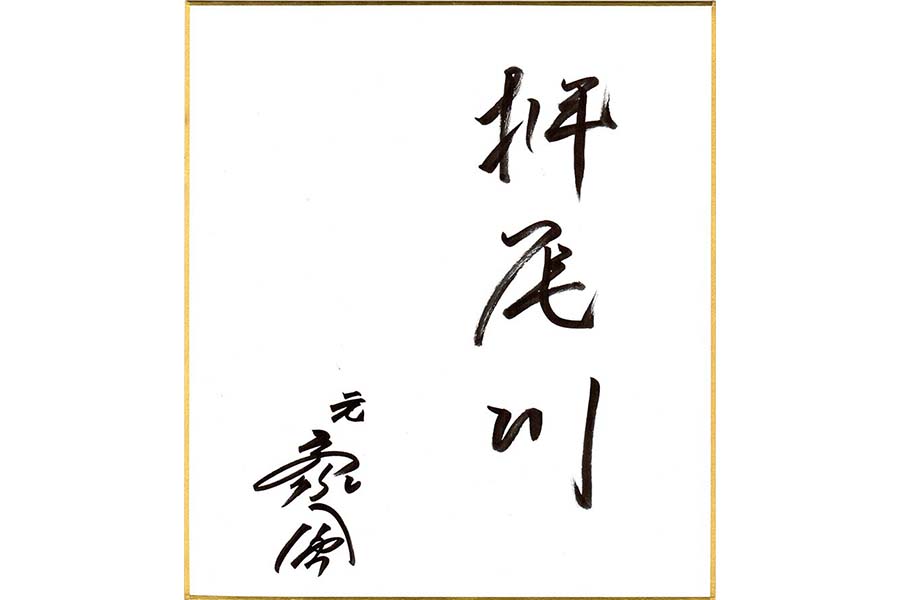 押尾川
元
豪風